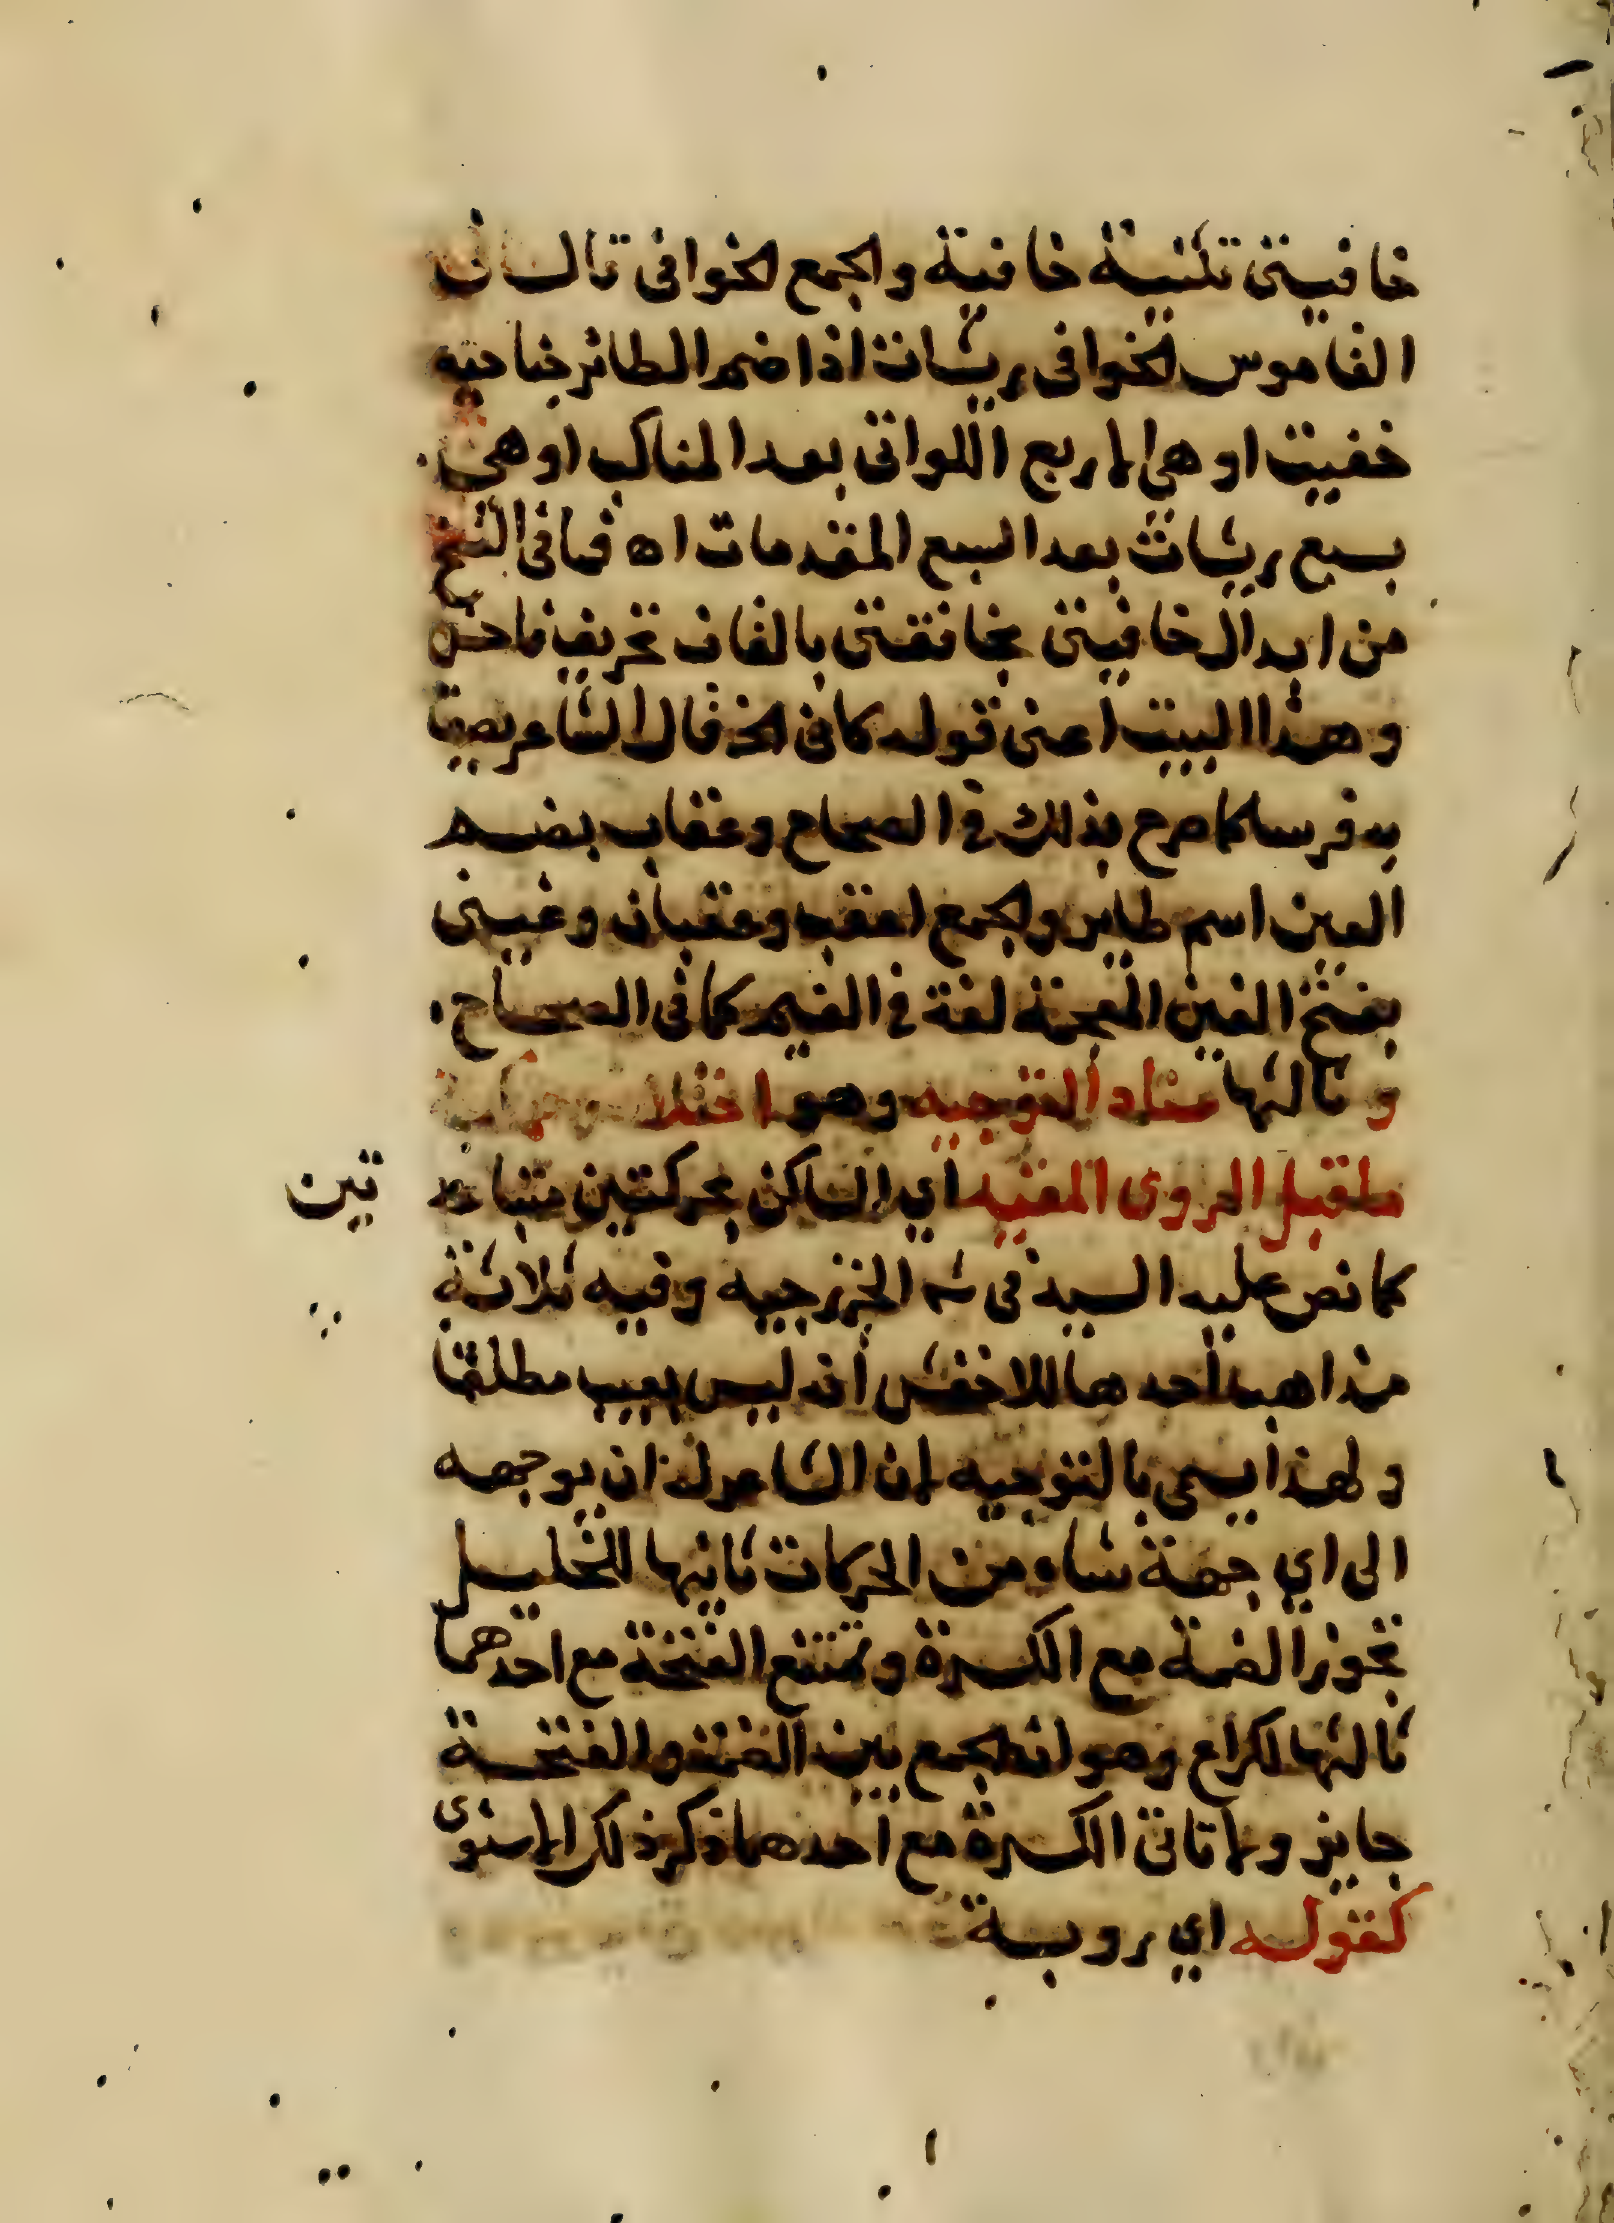 خافيتى تثنية خافية والجمع الخوافى قال فى
القاموس الخوافى ريشات اذا ضم الطائر جناحيه
خفيت او هي الاربع اللواتى بعد المناكب او هى
سبع ريشات بعد السبع المقدمات اه فما فى النسخ
من ابدال خافيتى بخانقتى بالقاف تحريف فاحش
وهذا البيت اعنى قوله كانى الخ قال الشاعر يصف
به فرسا كما صرح بذلك فى الصحاح وعقاب بضم
العين اسم طاير والجمع اعقب وعقبان وغين
بفتح الغين المعجمة لغة فى الغيم كما فى الصحاح
وثالثها سناد التوجيه وهو اختلاف حركة
ماقبل الروى المقيد اي الساكن بحركتين متباعد
تين
كما نص عليه السيد فى شه الخزرجيه وفيه ثلاثة
مذاهب احدها للاخفش أنه ليس بعيب مطلقا
ولهذا يسمى بالتوجيه لان الشاعر له ان يوجهه
الى اي جهة شاء من الحركات ثانيها للخليل
تجوز الضمة مع الكسرة وتمتنع الفتحة مع احدهما
ثالثها لكراع وهو ان الجمع بين الضمة والفتحة
جايز ولا تاتى الكسرة مع احدهما ذكر ذلك الاسنوى
كقوله اي روبة